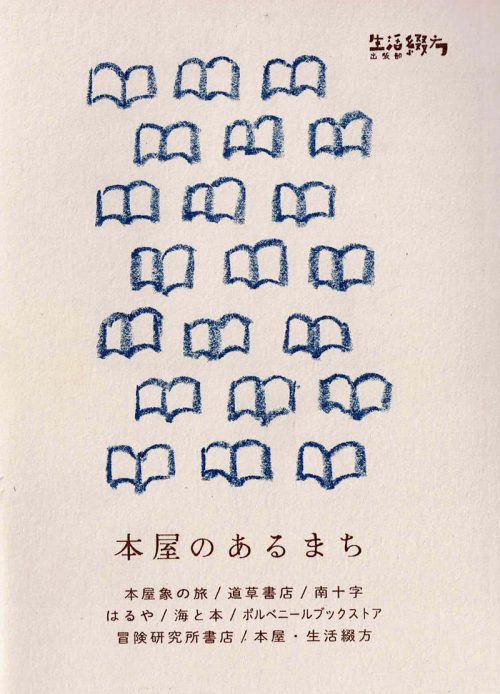 生活綴方
出張部
本屋のあるまち
本屋象の旅 / 道草書店 / 南十字
はるや / 海と本 / ポルベニールブックストア
冒険研究所書店 / 本屋・生活綴方